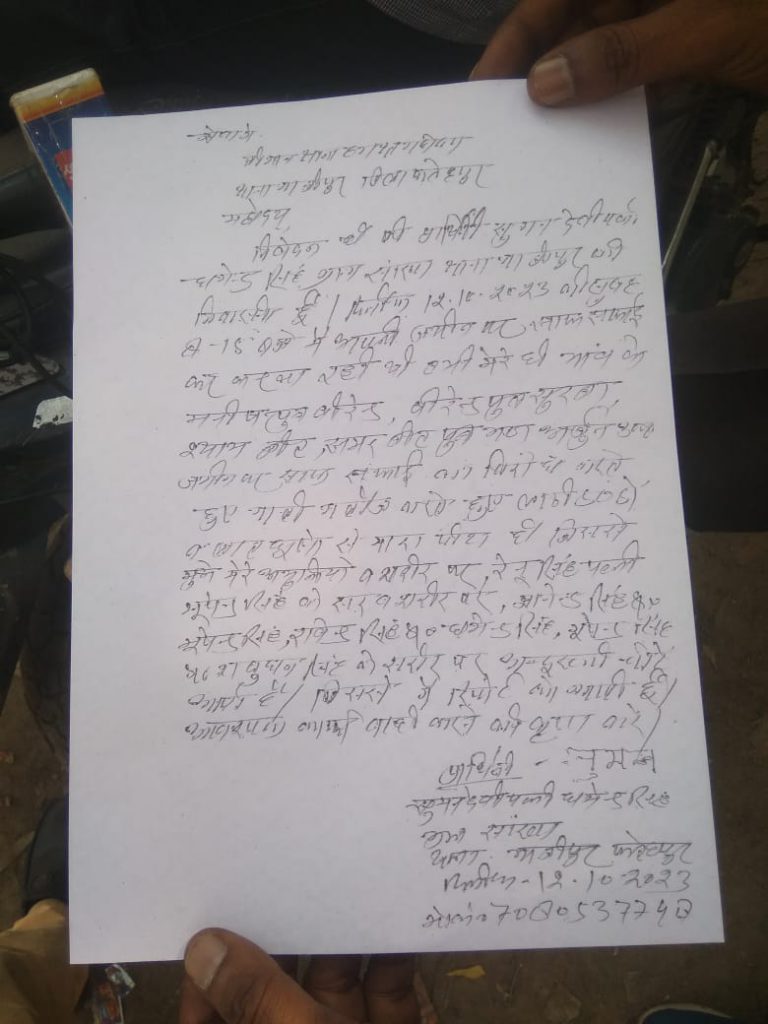 सेवा में,
श्रीमान थाना
थाना गाजीपुर जिला फतेहपुर
महोदय,
निवेदन है की प्रार्थिनी सुमन देवी पत्नी
धर्मेन्द्र सिंह ग्राम सांखा थाना गाजीपुर की
निवासिनी हूँ। दिनांक 12.10.2023 की सुबह
8-15 बजे मैं अपनी जमीन पर साफ सफाई
कर करवा रही थी तभी मेरे ही गांव के
पुत्र वीरेन्द्र, वीरेन्द्र पुत्र
श्याम वीर, अमर वीर पुत्र गण अर्जुन
जमीन पर साफ सफाई का विरोध करते
हुए गाली गलौज करते हुए लाठी डंडों
व लात घूसो से मारा पीटा है जिससे
मुझे मेरे व शरीर पर, रेनू सिंह पत्नी
भूपेन्द्र सिंह को सर व शरीर पर, सिंह S/O
भूपेन्द्र सिंह, सिंह S/O धर्मेन्द्र सिंह, भूपेन्द्र सिंह
S/O सिंह को शरीर पर अन्दरूनी चोटें
आयी है। जिससे मैं रिपोर्ट को आयी हूँ।
आवश्यक कार्यवाही करने की कृपा करें।
प्रार्थिनी - सुमन
सुमन देवी पत्नी धर्मेन्द्र सिंह
ग्राम सांखा
थाना गाजीपुर फतेहपुर
दिनांक - 12.10.2023
मो०नं० 7080537748